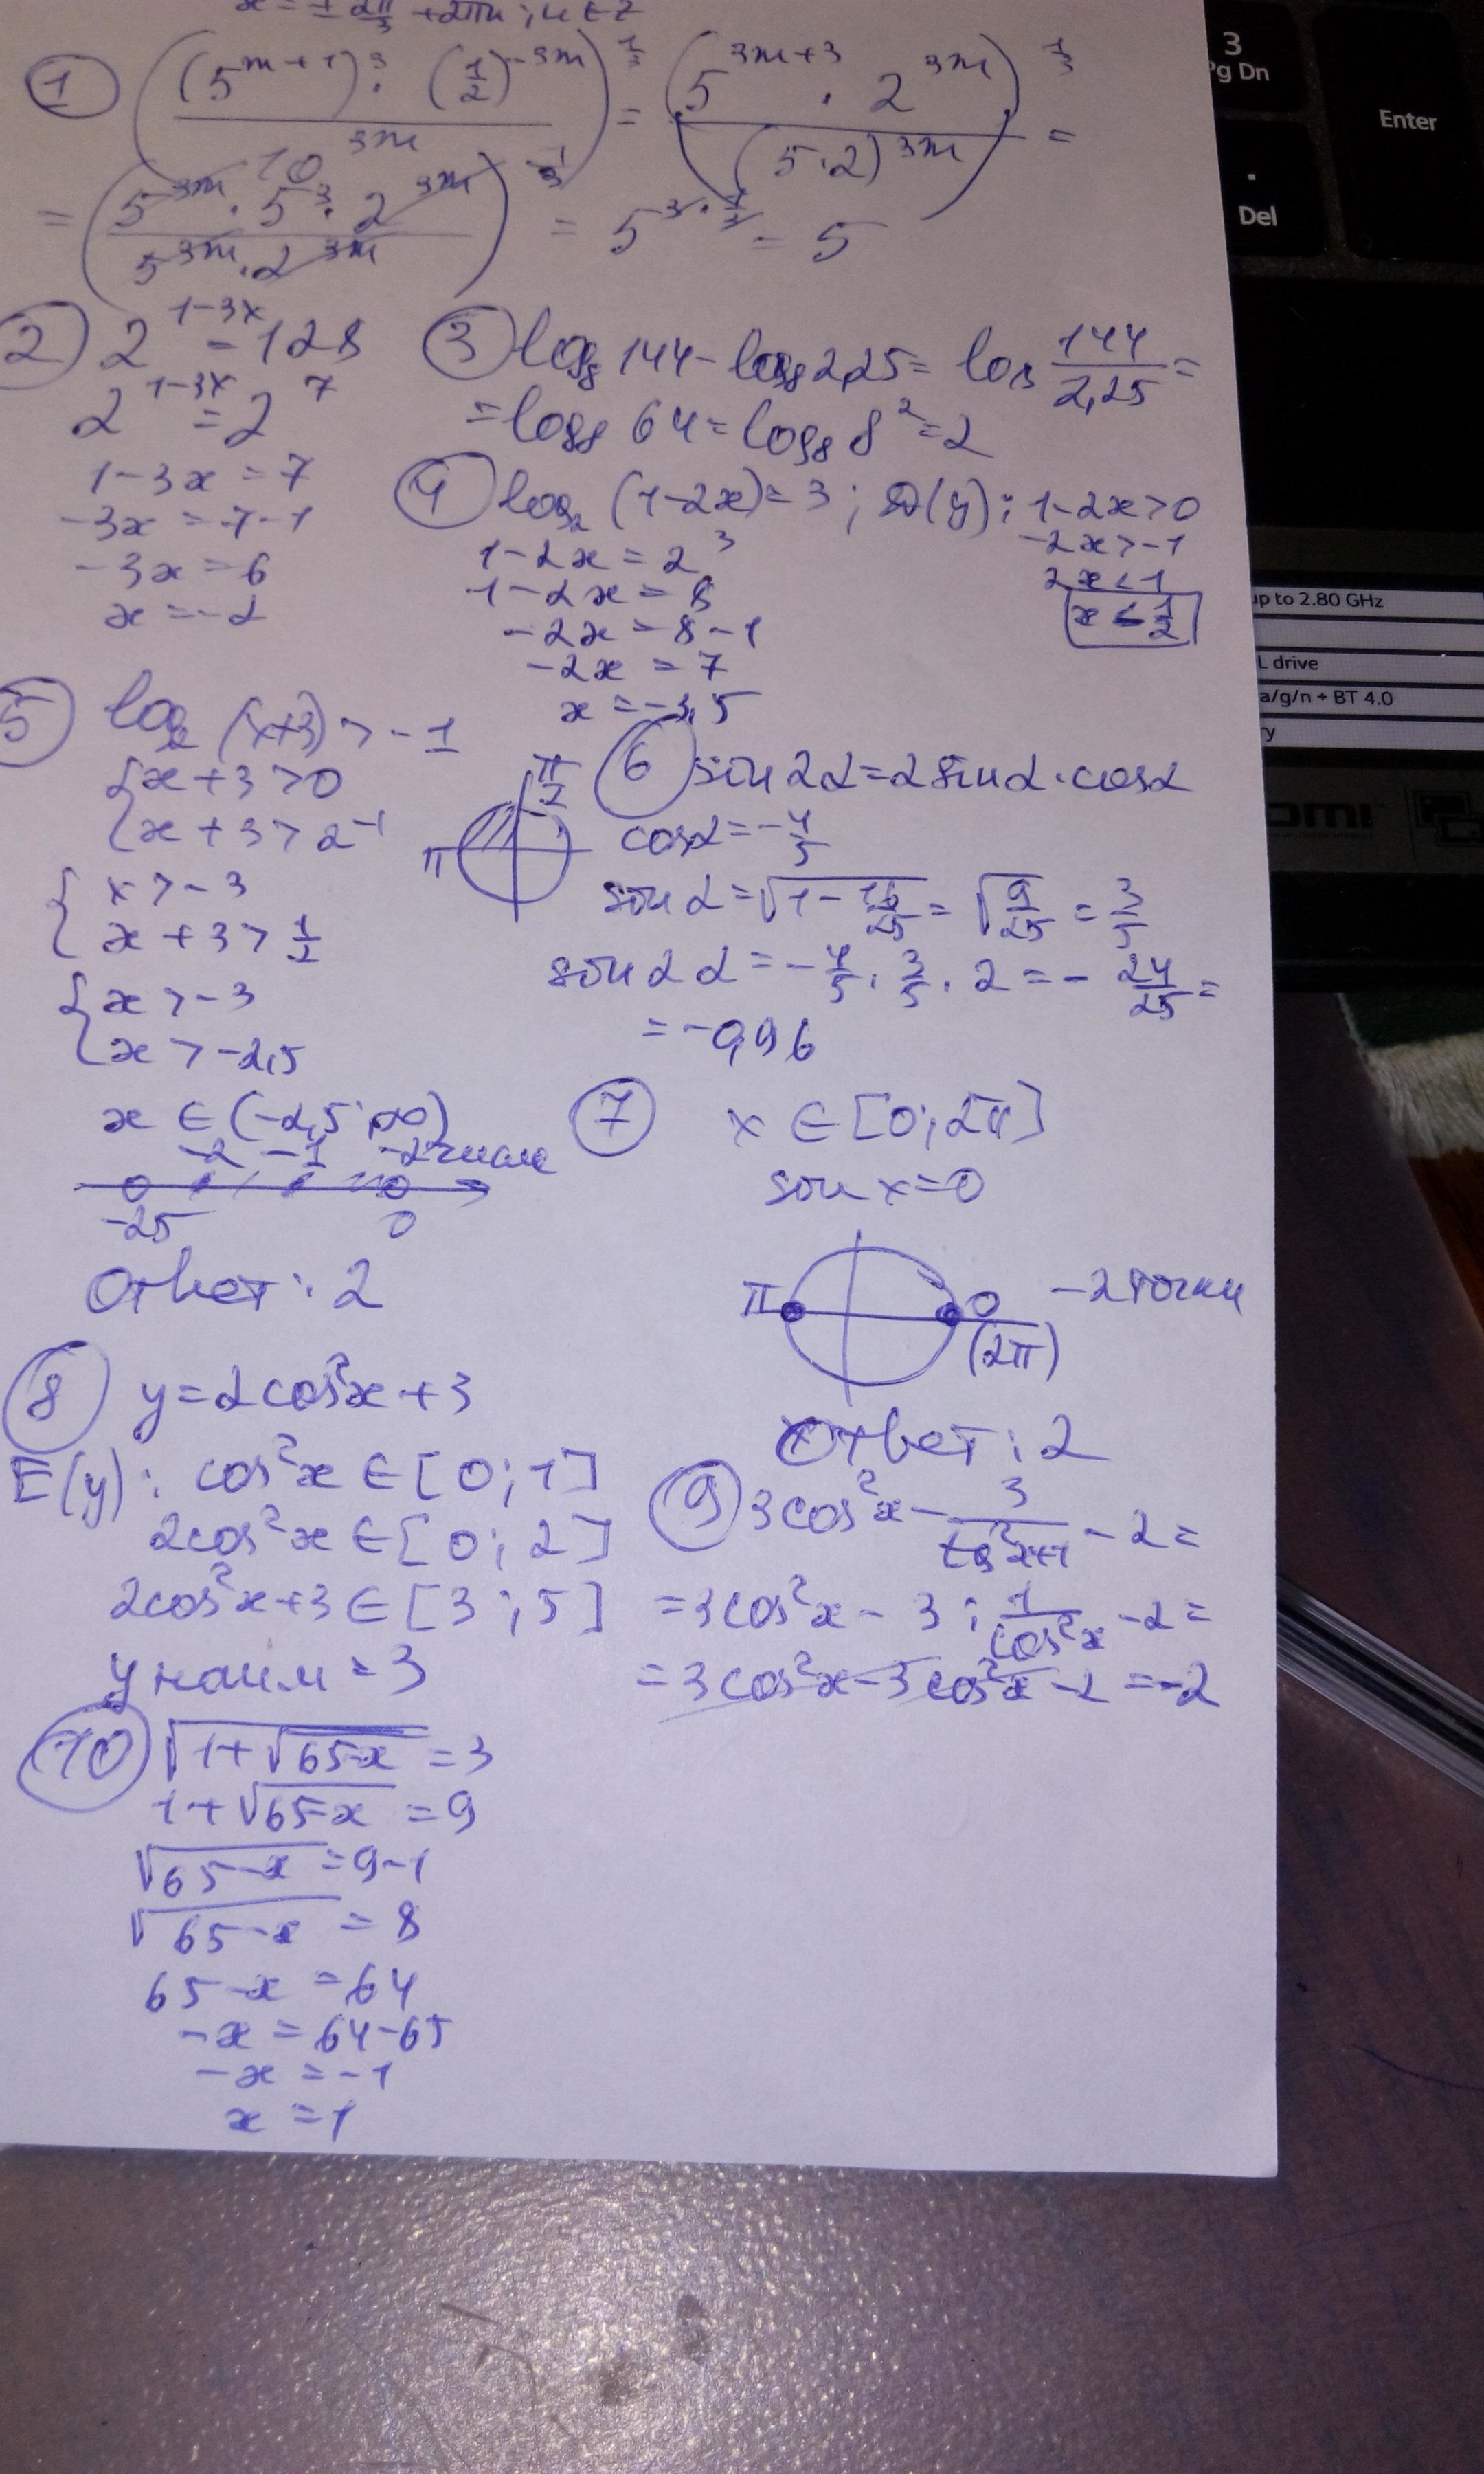 x = ± 2π/3 + 2πn; n ∈ Z
① ((5^(m+1))^3 · (1/2)^(-3m) / 10^(3m))^(1/3) = (5^(3m+3) · 2^(3m) / (5·2)^(3m))^(1/3) =
= (5^(3m) · 5^3 · 2^(3m) / 5^(3m) · 2^(3m))^(1/3) = 5^(3·1/3) = 5
② 2^(1-3x) = 128
2^(1-3x) = 2^7
1-3x = 7
-3x = 7-1
-3x = 6
x = -2
③ log₈ 144 - log₈ 2,25 = log₈ 144/2,25 =
= log₈ 64 = log₈ 8² = 2
④ log₂ (1-2x) = 3; D(y): 1-2x>0
-2x>-1
2x<1
x<1/2
1-2x = 2³
1-2x = 8
-2x = 8-1
-2x = 7
x = -3,5
⑤ log₂ (x+3) > -1
{x+3>0
{x+3>2^(-1)
{x>-3
{x+3>1/2
{x>-3
{x>-2,5
x ∈ (-2,5; ∞)
-2 -1 -2
-25 0
Ответ: 2
⑥ sin2α = 2sinα·cosα
π/2
π
cosα = -4/5
sinα = √(1-16/25) = √(9/25) = 3/5
sin2α = -4/5 · 3/5 · 2 = -24/25 =
= -0,96
⑦ x ∈ [0; 2π]
sin x = 0
π 0 -2 точки
(2π)
Ответ: 2
⑧ y = 2cos²x+3
E(y): cos²x ∈ [0; 1]
2cos²x ∈ [0; 2]
2cos²x+3 ∈ [3; 5]
y наим = 3
⑨ 3cos²x - 3/(tg²x+1) - 2 =
= 3cos²x - 3 : 1/cos²x - 2 =
= 3cos²x - 3cos²x - 2 = -2
⑩ √(1+√(65-x)) = 3
1+√(65-x) = 9
√(65-x) = 9-1
√(65-x) = 8
65-x = 64
-x = 64-65
-x = -1
x = 1
3
Pg Dn
Enter
.
Del
up to 2.80 GHz
L drive
a/g/n + BT 4.0
ry